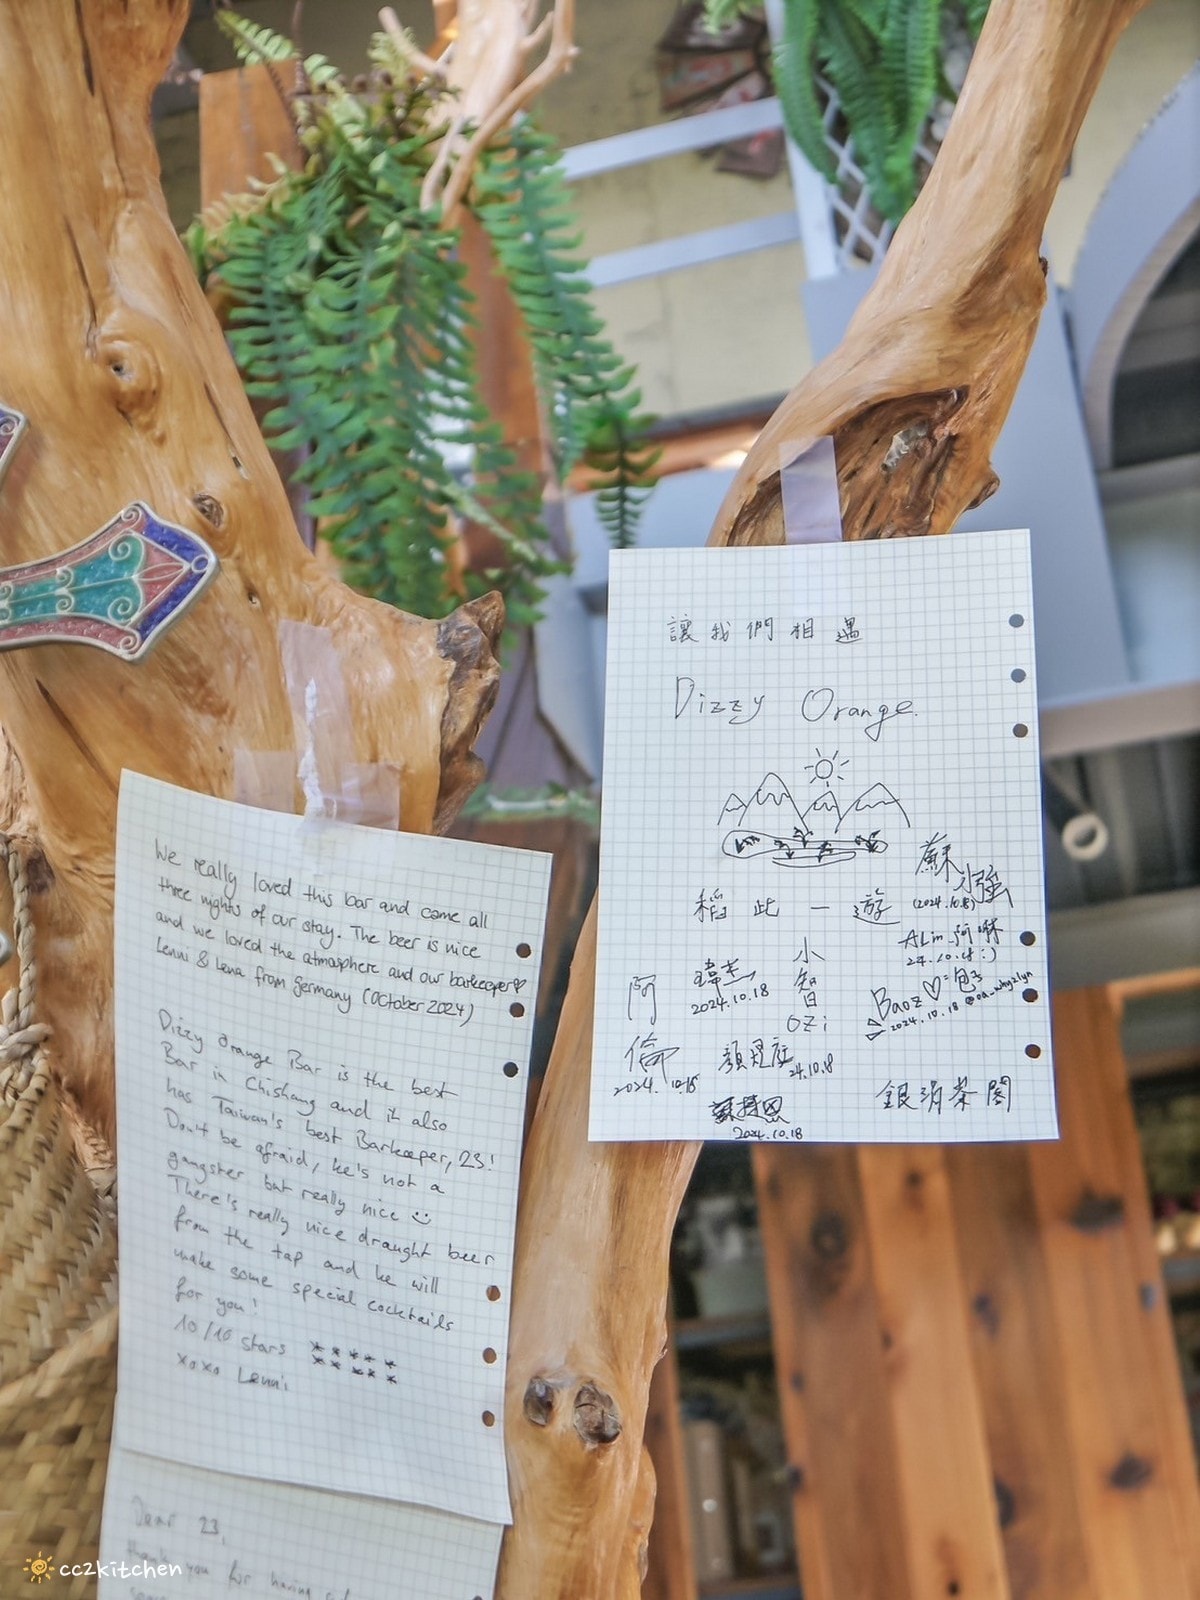 We really loved this bar and came all
three nights of our stay. The beer is nice
and we loved the atmosphere and our barkeeper♡
Lenni & Lena from Germany (October 2024)
Dizzy Orange Bar is the best
Bar in Chishang and it also
has Taiwan's best Barkeeper, 23!
Don't be afraid, he's not a
gangster but really nice
There's really nice draught beer
from the tap and he will
make some special cocktails
for you!
10/10 stars *****
*****
xoxo Lenni
Dear 23,
thank you for having
讓我們相遇
Dizzy Orange.
稻此一遊
蘇小強
(2024.10.18)
ALin 阿咻
24.10.18 :)
Baoz♡
2024.10.18
阿倫
2024.10.18
2024.10.18
小智
OZi
24.10.18
2024.10.18
cc2kitchen